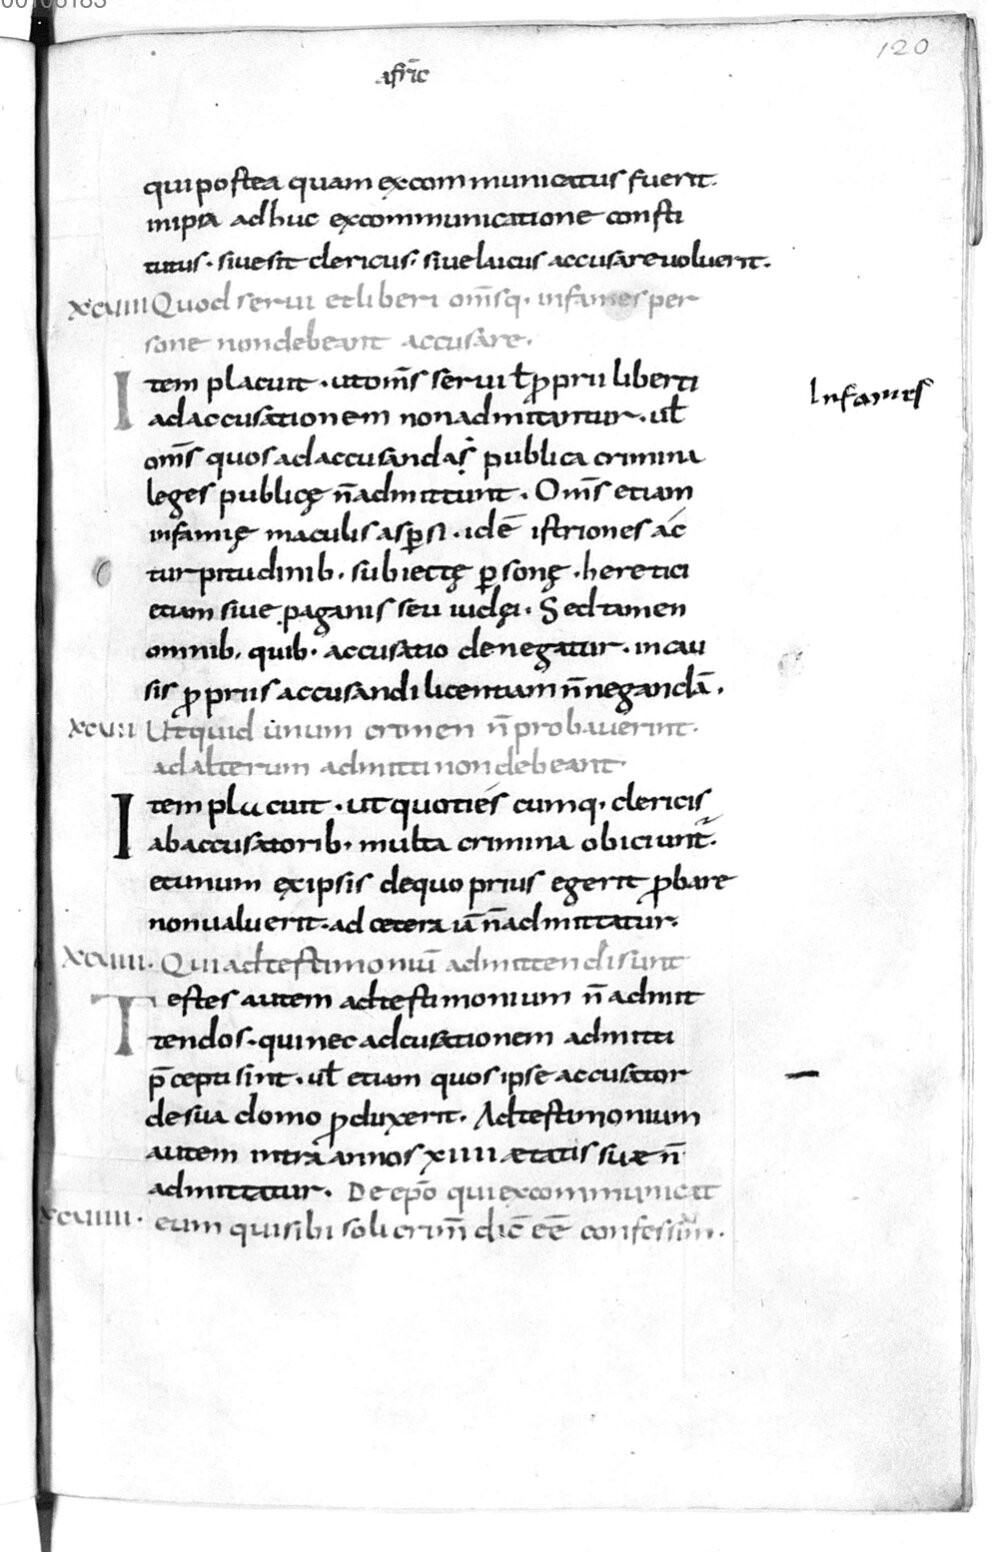 120
afric̄
qui postea quam excommunicatus fuerit.
in ipsa adhuc excommunicatione consti
tutus · sive sit clericus · sive laicus accusare voluerit.
Quod servi et liberti om̄sq· infames per
sone non debeant accusare.
Item placuit · ut om̄s servi ł p̱prii liberti
ad accusationem non admitantur · uł
om̄s quos ad accusanda publica crimina
leges publicę n̄ admittunt . Om̄s etiam
infamię maculis asp̱si · idē istriones ac
turpitudinib· subiectę p̱sonę · heretici
etiam sive pagani seu iudęi · Sed tamen
omnib· quib· accusatio denegatur · in cau
sis p̱priis accusandi licentiam n̄ negandā.
Infames
Ut quid unum crimen n̄ probauerint.
ad alterum admitti non debeant.
Item placuit · ut quoties cumq· clericis
ab accusatorib· multa crimina obiciunt̄.
et unum ex ipsis de quo prius egerit p̱bare
non valuerit · ad cetera iā n̄ admittatur.
Qui ad testimoniū admittendi sunt
Testes autem ad testimonium n̄ admit
tendos · qui nec ad cusationem admitti
p̄cepti sint · uł etiam quos ipse accusator
de sua domo p̱duxerit. Ad testimonium
autem intra annos xiiii ætatis suæ n̄
admittatur. De ep̄o qui excommunicat
xcviiii · eum qui sibi soli crim̄ dic̄ eē confessum.